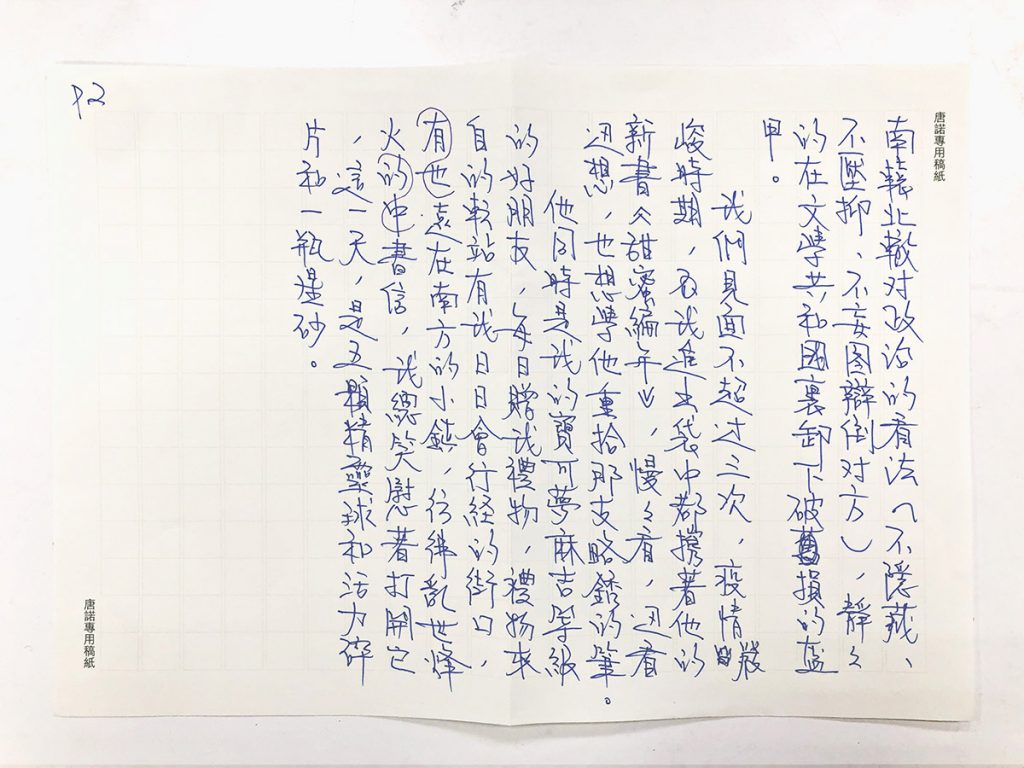 P2
唐諾專用稿紙
南轅北轍对政治的看法（不隱藏、
不壓抑、不妄图辯倒对方），靜々
的在文學共和國裏卸下破舊損的盔
甲。
我們見面不超过三次，疫情嚴
峻時期，我進出袋中都攜著他的
新書《甜蜜編年》，慢々看，边看
边想，也想學他重拾那支略銹的筆。
他同時是我的寶可夢麻吉等級
的好朋友，每日贈我禮物，禮物來
自的転站有我日日會行経的街口，
有也遠在南方的小鎮，彷彿亂世烽
火的中書信，我總笑慰著打開它
，這一天，是五顆精靈球和活力碎
片和一瓶星砂。
唐諾專用稿紙